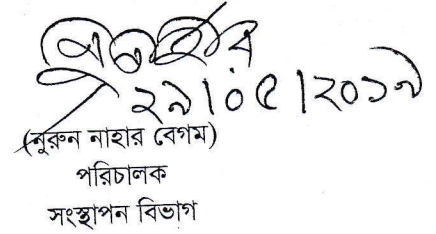 ২৯।০৫।২০১৯
(নুরুন নাহার বেগম)
পরিচালক
সংস্থাপন বিভাগ